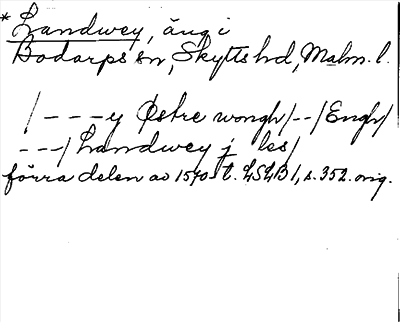 * Landwey, äng i
Bodarps sn, Skytts hd, Malm. l.
/---y Østre wongh/--/Engh/
---/Landwey j les/
förra delen av 1570-t. LSLB1, s. 352. orig.